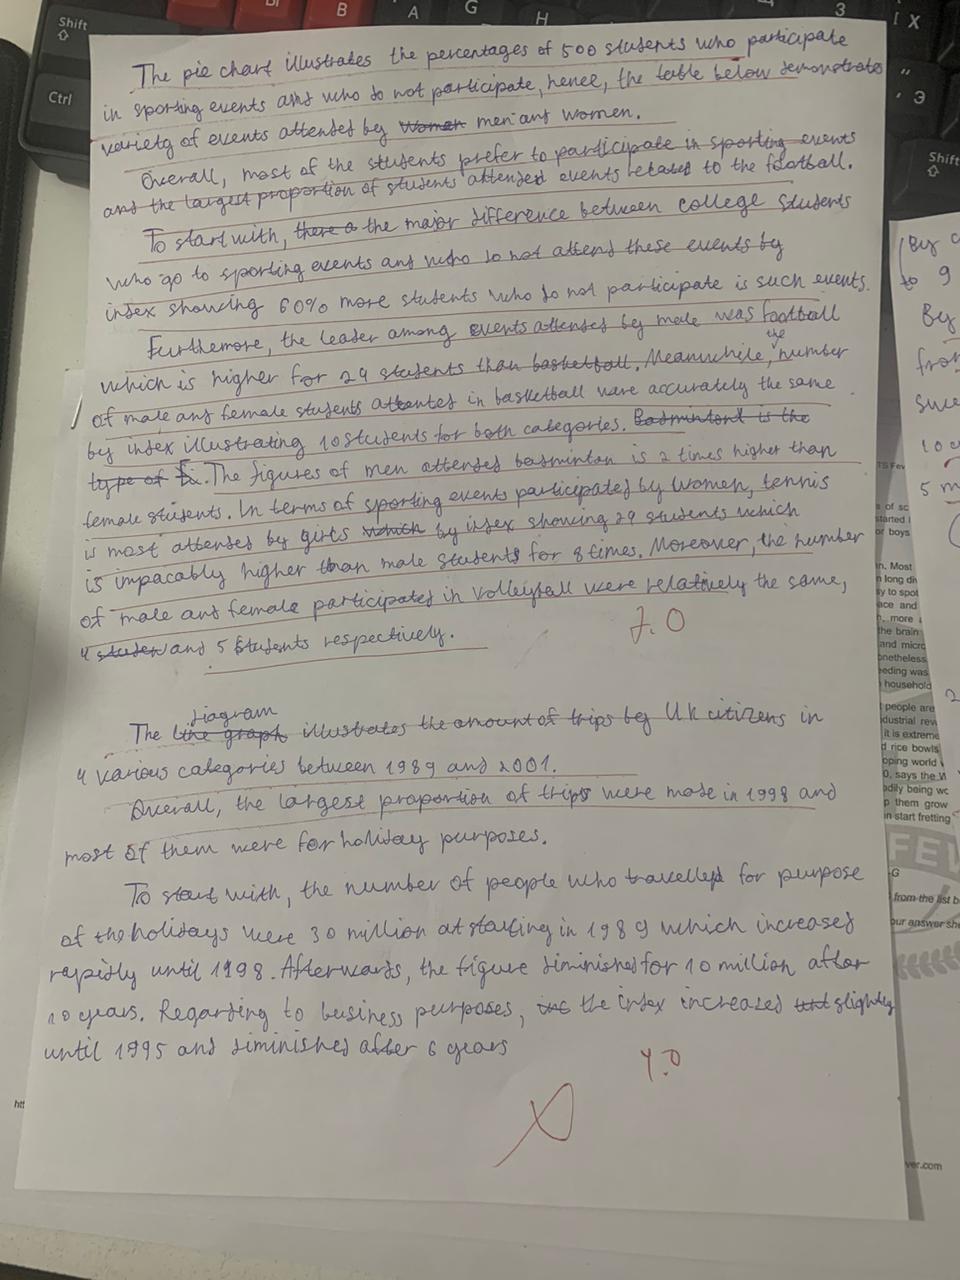 Shift
Ctrl
B
A
G
H
3
[ X
" 
, Э
Shift
The pie chart illustrates the percentages of 500 students who participate
in sporting events and who do not participate, hence, the table below demonstrates
variety of events attended by women men and women.
Overall, most of the students prefer to participate in sporting events
and the largest proportion of students attended events related to the football.
To start with, there a the major difference between college students
who go to sporting events and who do not attend these events by
index showing 60% more students who do not participate is such events.
Furthemore, the leader among events attended by male was football
which is higher for 24 students than basketball. Meanwhile, the number
of male and female students attented in basketball ware accurately the same
by index illustrating 10 students for both categories. Badmintond is the
type of The figures of men attended badminton is 2 times higher than
female students. In terms of sporting events participated by women, tennis
is most attended by girls which by index showing 29 students which
is impacably higher than male students for 8 times. Moreover, the number
of male and female participated in volleyball were relatively the same,
4 studen and 5 students respectively.
7.0
The line graph diagram illustrates the amount of trips by UK citizens in
4 various categories between 1989 and 2001.
Overall, the largest proportion of trips were made in 1998 and
most of them were for holiday purposes.
To start with, the number of people who travelled for purpose
of the holidays were 30 million at starting in 1989 which increased
rapidly until 1998. Afterwards, the figure diminished for 10 million after
10 years. Regarding to business purposes, the index increased slightly
until 1995 and diminished after 6 years
4.0
(By
to 9
By
from
10
5 m
of sc
started
or boys
n. Most
n long div
sy to spot
ace and
, more
the brain
and micro
onetheless
eeding was
household
people are
dustrial rev
it is extreme
d rice bowls
oping world
0, says the W
adily being wo
p them grow
n start fretting
FEV
G
from the list b
our answer she
htt
ver.com